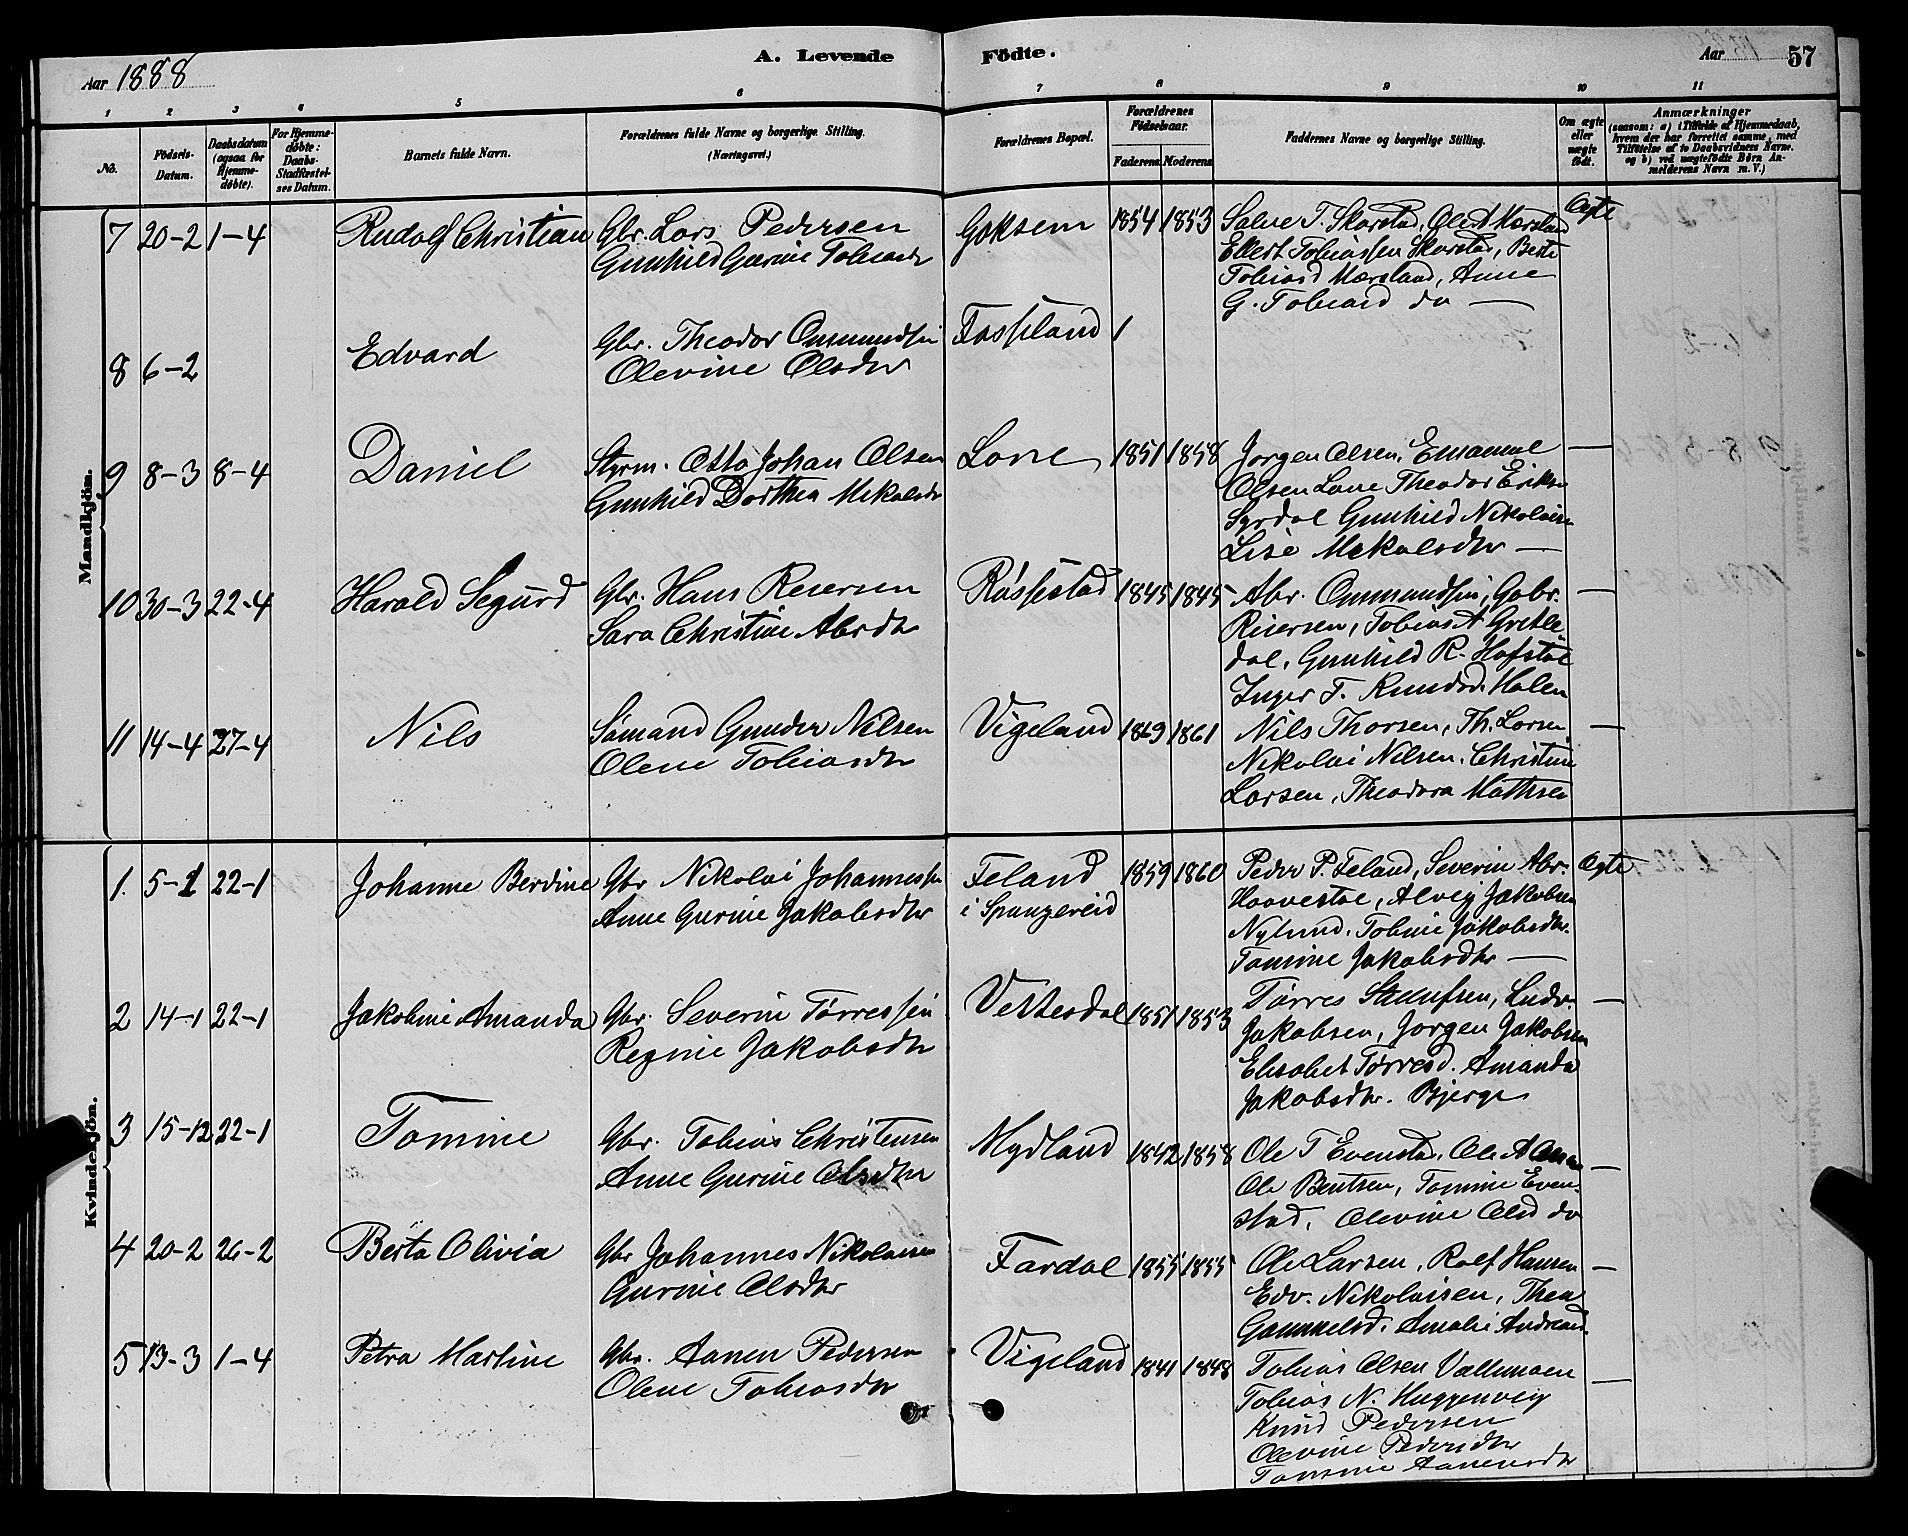 Aar 1888
A. Levende Födte.
Aar
57
1 2 3 4 5 6 7 8 9 10 11
No.
Födsels-Datum.
Daabsdatum (ogsaa for Hjemme-döbte).
For Hjemme-döbte: Daabs-Stadfæstel-ses Datum.
Barnets fulde Navn.
Forældrenes fulde Navne og borgerlige Stilling. (Næringsvei.)
Forældrenes Bopæl.
Forældrenes Födselsaar.
Faderens. Moderens.
Faddernes Navne og borgerlige Stilling.
Om ægte eller uægte födt.
Anmærkninger
(saasom: a) i Tilfælde af Hjemmedaab,
hvem der har forrettet samme, med
Tilföielse af to Daabsvidners Navne.
og b) ved uægtefödte Börn An-
melderens Navn m. V.)
Mandkjön.
7 20-2 1-4 Rudolf Christian Gbr. Lars Pedersen Goksem 1854 1853 Salve T. Skarstad, Ole A Mørsland Ægte
Gunhild Gurine Tobiasdr Ellert Tobiassen Skarstad, Berte
Tobiasd Mørsland, Anne
G. Tobiasd do —
8 6-2 Edvard Gbr. Theodor Ommundsen Fosseland 1
Olevine Olsdtr
9 8-3 8-4 Daniel Styrm. Otto Johan Olsen Lone 1851 1858 Jorgen Olsen, Emanuel —
Gunhild Dorthea Mikalsdr Olsen Lone Theodor Eriksen
Syrdal Gunhild Nikolaisen
Lise Mikalsdtr —
10 30-3 22-4 Harald Segurd Gbr. Hans Reiersen Røssestad 1845 1845 Abr. Ommundsen, Gabr. —
Sara Christine Abrdtr Reiersen, Tobias A Gretle
dal, Gunhild R. Hofstøl
Inger T. Knudsd. Holen
11 14-4 27-4 Nils Sømand Gunder Nilsen Vigeland 1869 1861 Nils Thorsen, Th. Larsen —
Olene Tobiasdtr Nikolai Nilsen, Christine
Larsen, Theodora Mathsen
Kvindekjön.
1. 5-1 22-1 Johanne Berdine Gbr Nikolai Johannessen Feland 1859 1860 Peder P. Feland, Severin Abr. Ægte
Anne Gurine Jakobsdtr i Spangereid Haavestøl, Alvig Jakobsen
Nylund, Tobine Jakobsdtr.
Tomine Jakobsdtr —
2 14-1 22-1 Jakobine Amanda Gbr. Severin Tørressen Vettesdal 1851 1853 Tørres Stenufsen, Ludv. —
Regine Jakobsdtr Jakobsen, Jorgen Jakobsen
Elisabet Tørresd. Amanda
Jakobsdtr. Bjerge
3 15-12 22-1 Tomine Gbr. Tobias Christensen Mydland 1842 1858 Ole T Evenstad, Ole A —
Anne Gurine Olsdtr Ole Bentsen, Tomine Even-
stad, Olevine Olsd do
4 20-2 26-2 Berta Olivia Gbr Johannes Nikolaisen Fardal 1855 1855 Ole Larsen, Rolf Hansen —
Gurine Olsdtr Edv. Nikolaisen, Thea
Gammelsd. Amalie Andreasd.
5 13-3 1-4 Petra Martine Gbr. Aanen Pedersen Vigeland 1841 1848 Tobias Olsen Vallemoen —
Olene Tobiasdtr Tobias N. Huggenvig
Knud Pedersen
Olevine Pedersdtr
Tomine Aanensdtr